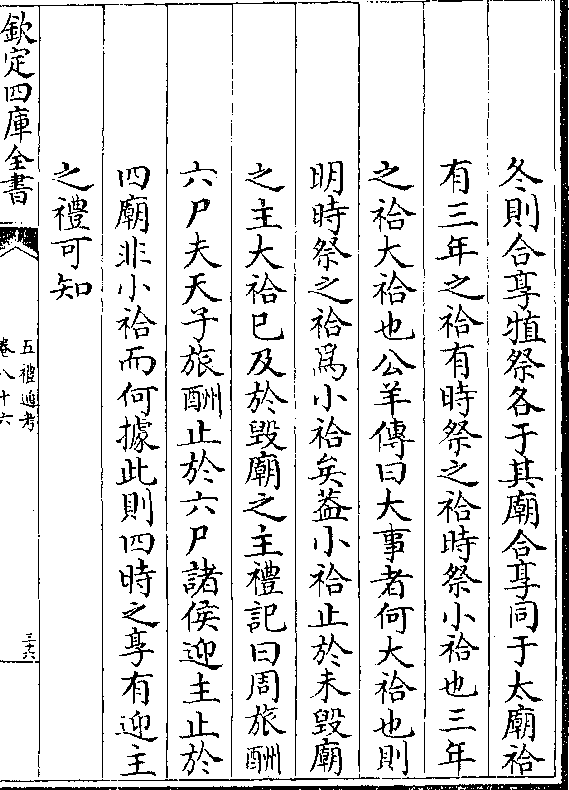 冬則合享犆祭各于其廟合享同于太廟祫
有三年之祫有時祭之祫時祭小祫也三年
之祫大祫也公羊傳曰大事者何大祫也則
明時祭之祫爲小祫矣葢小祫止於未毀廟
之主大祫已及於毀廟之主禮記曰周旅酬
六尸夫天子旅酬止於六尸諸侯迎主止於
四廟非小祫而何據此則四時之享有迎主
之禮可知
欽定四庫全書
五禮通考
卷八十六
三六